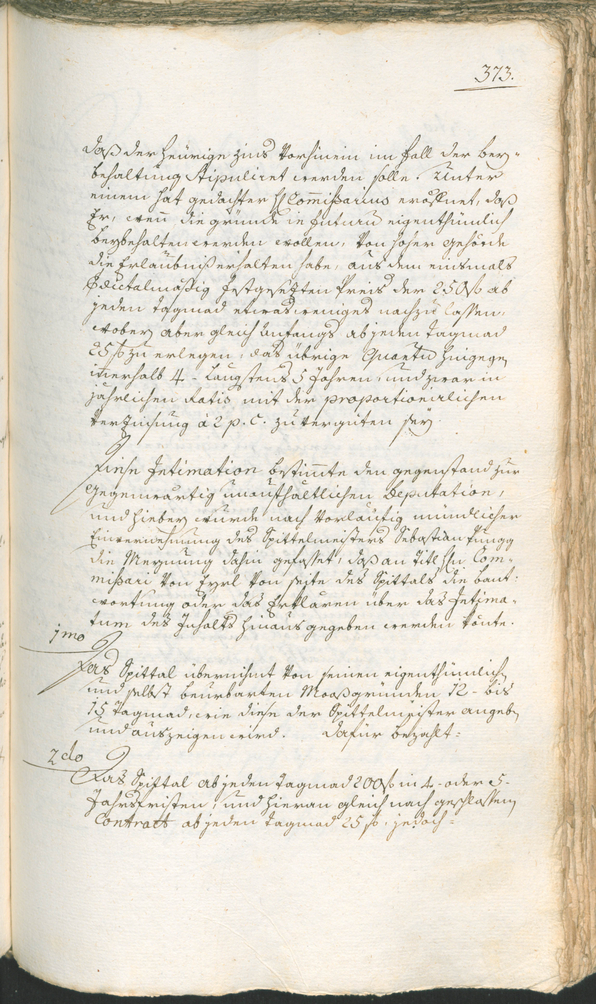 373.
daß der heurige Zins Vorhinein im fall der bey-
behaltung Stipuliret werden solle. Unter
einem hat gedachter H Commissarius eröffnet, daß
Er, wenn die gründe in futurum eigenthümlich
beybehalten werden wollen, von hoher gehörde
die Erlaubniß erhalten habe, aus dem einsmals
Edictalmässig festgesezten Preis der 250 f ab
jeden tagmad etwas weniges nachzulassen,
wobey aber gleich Anfangs ab jeden tagmad
25 f zu erlegen, das übrige Quantum hingegen
innerhalb 4 - Längstens 5 Jahren, und zwar in
jährlichen Ratis mit der proportionirlichen
Verzinsung à 2 p. C. zu verguten sey.
Diese Intimation bestimmte den gegenstand zur
gegenwärtig Deputation,
und hiebey wurde nach Vorläufig mündlicher
Einvernehmung des Spittelmeisters Sebastian
die Meynung dahin gefasset, daß an Titl Hn Com-
missari von von seite des Spittals die beant-
wortung oder das Erklären über das Intima-
tum des Inhalts hinaus gegeben werden könte.
1mo
Das Spittal übernihmt Von seinen eigenthümlichen
und selbst beurbarten Moosgründen 12 - bis
15 tagmad, wie diese der Spittelmeister angeben
und auszeigen wird. Dafür bezahlt:
2do
Das Spittal ab jeden tagmad 200 f in 4 - oder 5 -
Jahrsfristen, und hieran gleich nach geschlossenen
Contract ab jeden tagmad 25 f, jedoch=